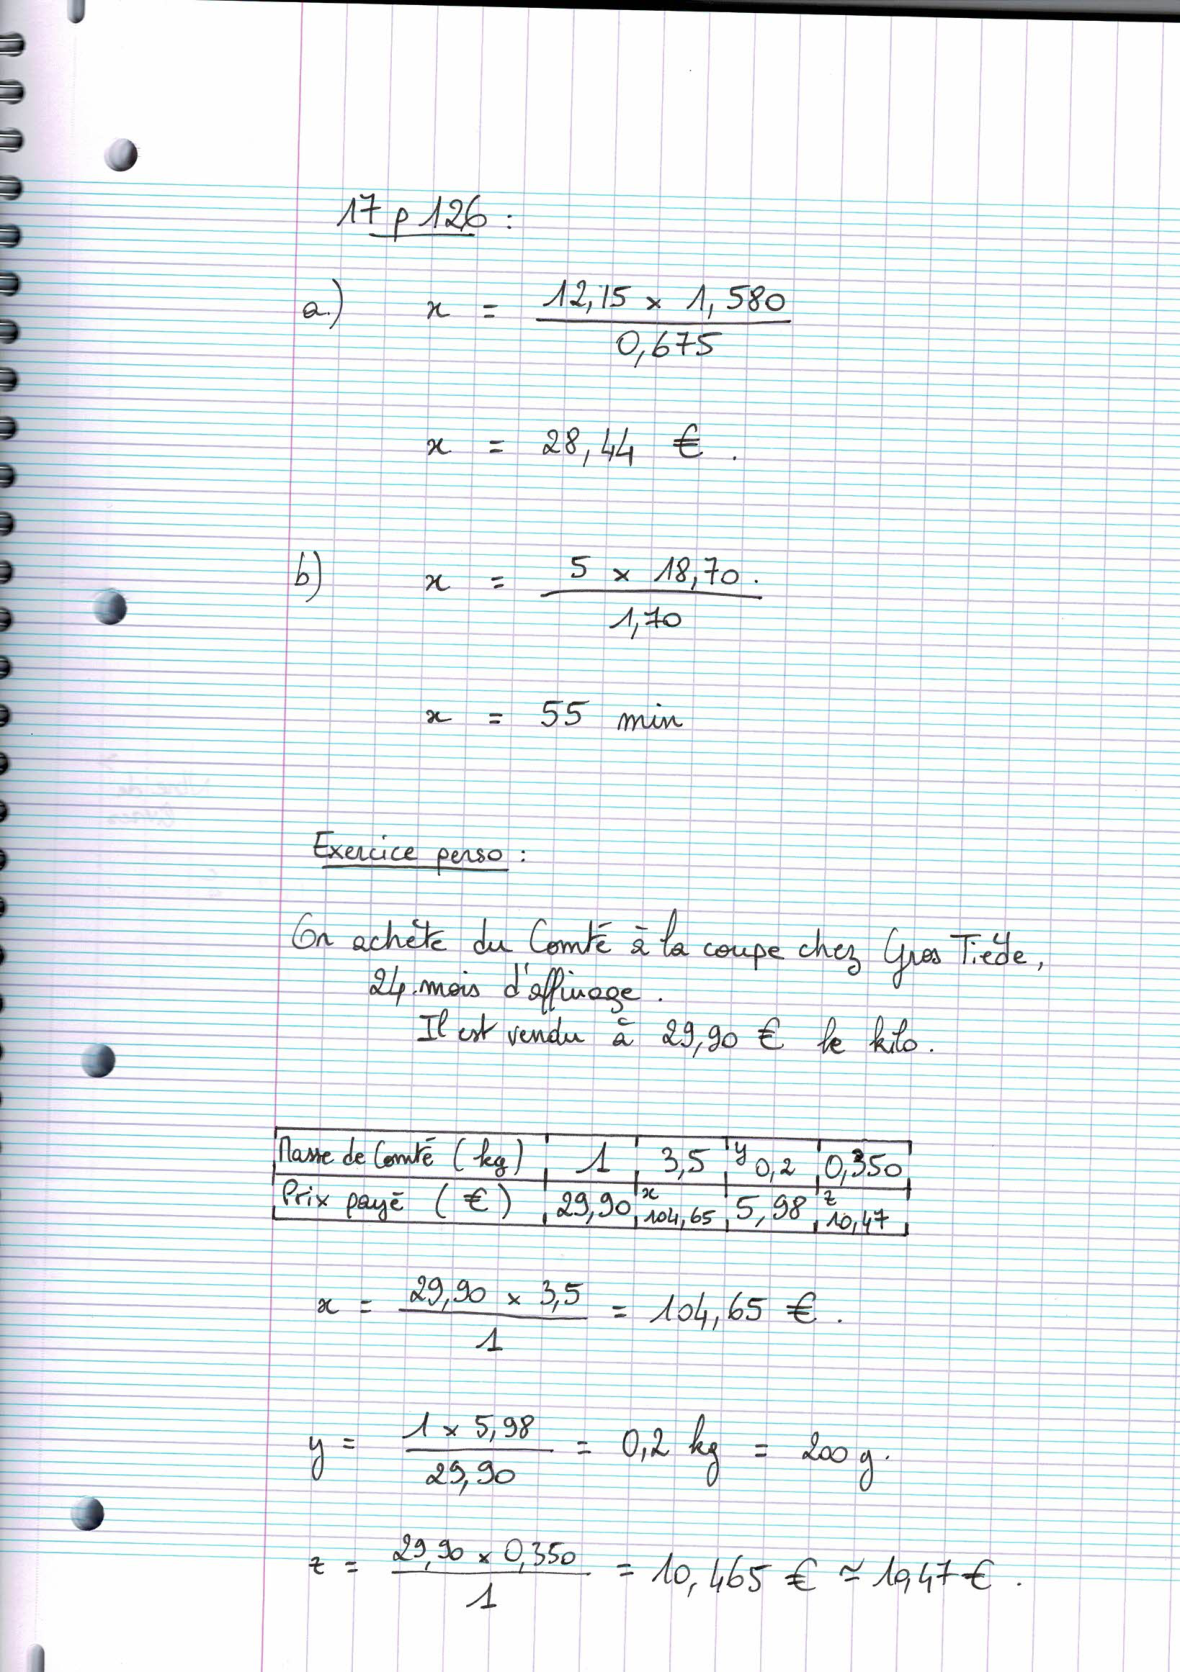 17 p 126 :
a.) x = 12,15 x 1,580 / 0,675
x = 28,44 € .
b) x = 5 x 18,70 . / 1,70
x = 55 min
Exercice perso :
On achète du Comté à la coupe chez Gros Tiède,
24 mois d'affinage .
Il est vendu à 29,90 € le kilo .
Masse de Comté (kg) 1 3,5 y 0,2 0,350
Prix payé (€) 29,90 x 104,65 5,98 z 10,47
x = 29,90 x 3,5 / 1 = 104,65 € .
y = 1 x 5,98 / 29,90 = 0,2 kg = 200 g .
z = 29,90 x 0,350 / 1 = 10,465 € ≃ 10,47 € .